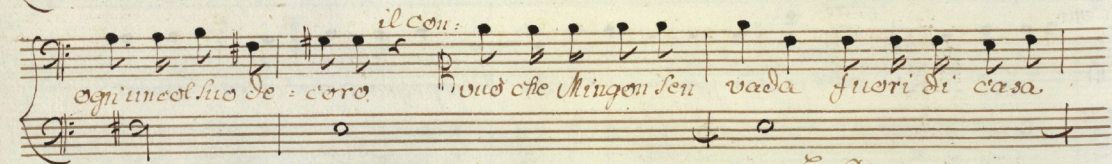 il con:
ogn'un col suo de = coro vuò che Mingon sen vada fuori di casa